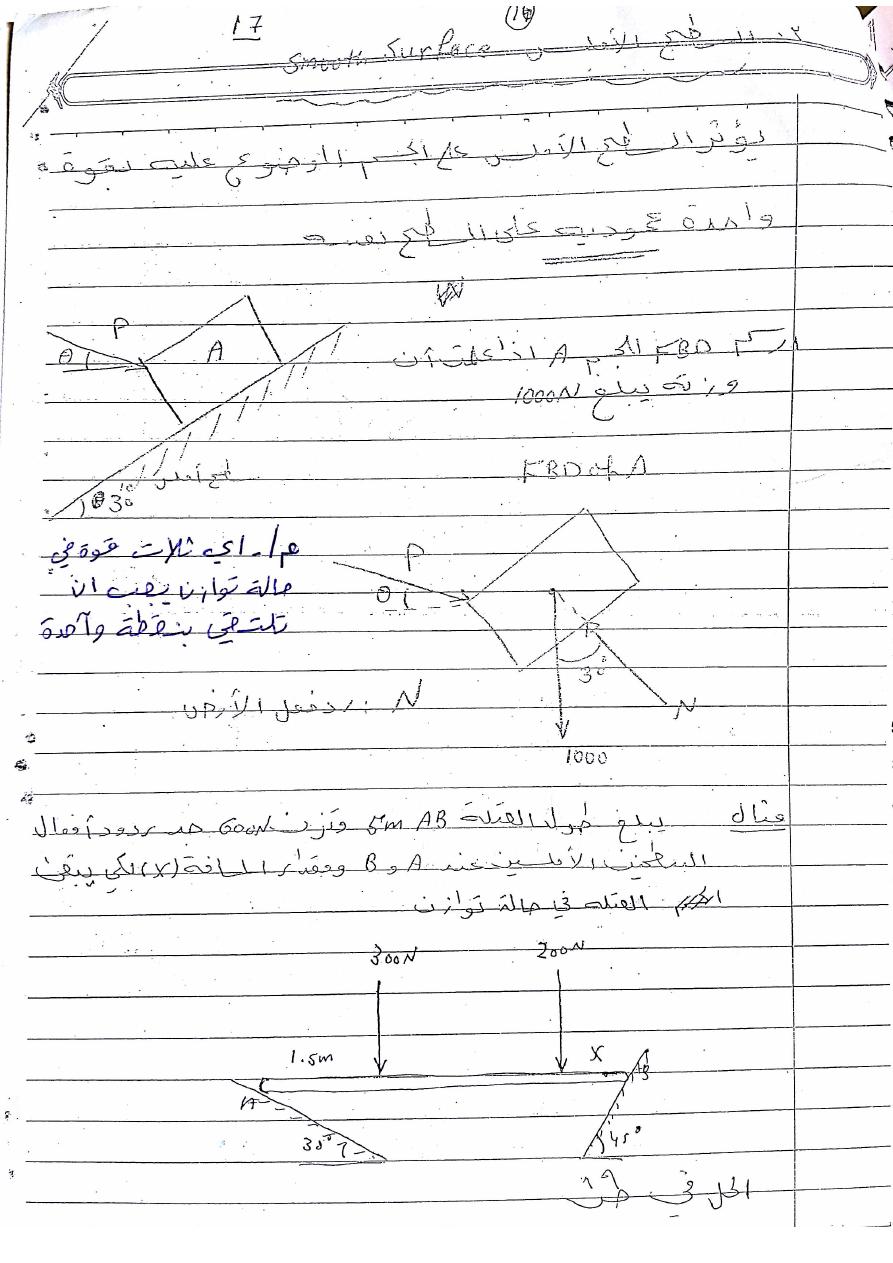 17
٢. السطح الأملس Smooth Surface
يؤثر السطح الأملس على الجسم الموضوع عليه بقوة
واحدة عمودية على السطح نفسه
W
ارسم FBD الجسم A اذا علمت أن
وزنه يبلغ 1000N
P
θ
A
سطح أملس
30°
FBD of A
م/. اي ثلاث قوة في
حالة توازن يجب ان
تلتقي بنقطة واحدة
P
θ
30°
N
1000
N : رد فعل الأرض
مثال يبلغ طول العتلة AB 5m وتزن 600N جد ردود أفعال
السطحين الأملسين عند A و B ومقدار المسافة (X) لكي يبقى
العتله في حالة توازن
300N
200N
1.5m
X
A
B
30°
45°
الحل في ص ١٩